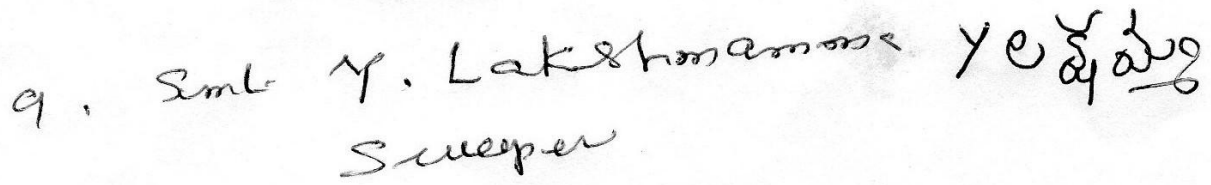 9. Smt Y. Lakshmamma Y లక్ష్మమ్మ
Sweeper